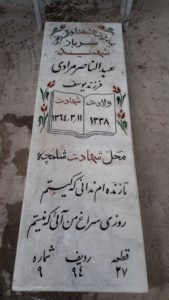 سرباز
شهید
عبدالناصر مرادی
فرزند یوسف
ولادت شهادت
۱۳۳۸ ۱۳۶۴/۳/۱۱
محل شهادت شلمچه
تا زنده‌ام ندانی که کیستم
روزی سراغ من آئی که نیستم
قطعه ردیف شماره
۲۷ ۹۴ ۹